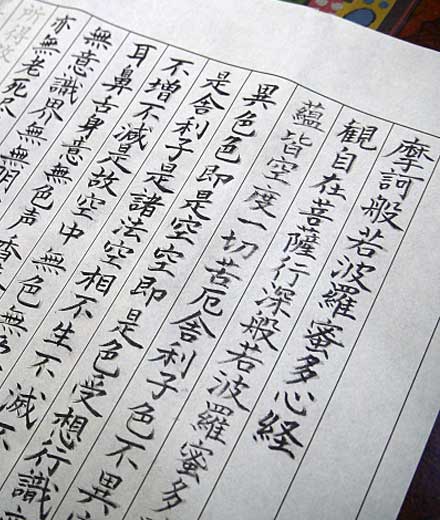 摩訶般若波羅蜜多心経
観自在菩薩行深般若波羅蜜多
蘊皆空度一切苦厄舎利子色不異
異色色即是空空即是色受想行識
是舎利子是諸法空相不生不滅不
不増不減是故空中無色無
耳鼻舌身意無色声香
無意識界無無明
亦無老死尽
所得故